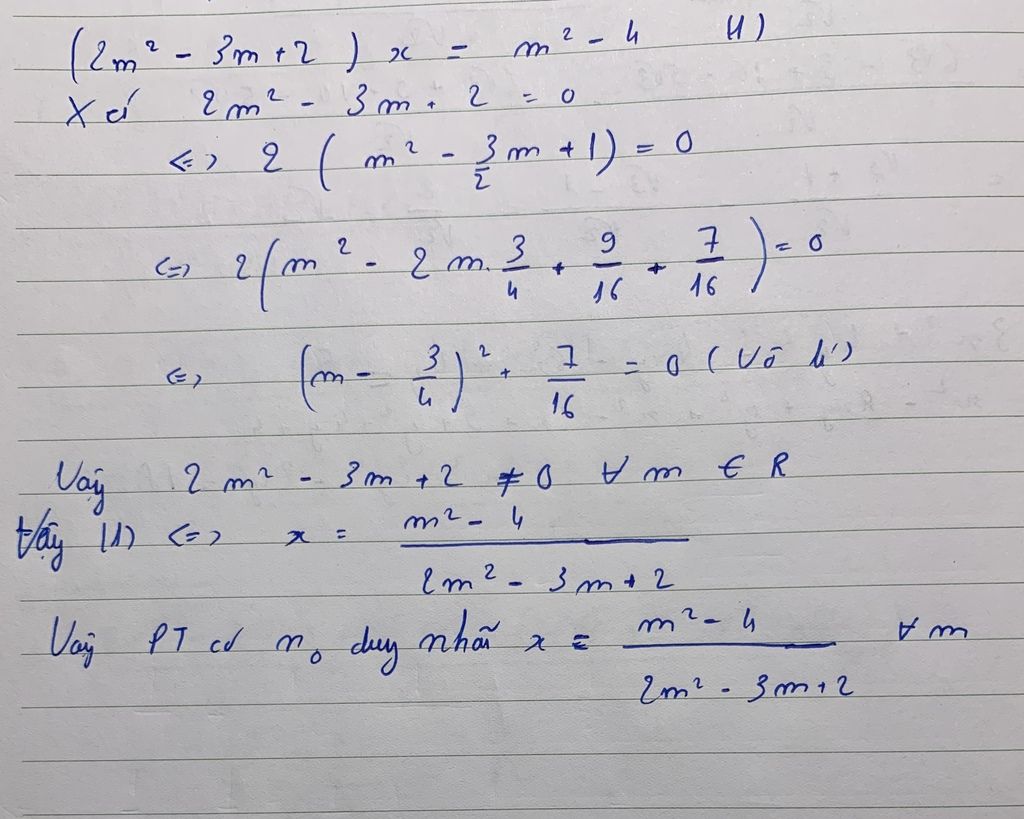 (2m² - 3m + 2) x = m² - 4 (1)
Xét 2m² - 3m + 2 = 0
<=> 2 (m² - 3/2 m + 1) = 0
<=> 2 (m² - 2m. 3/4 + 9/16 + 7/16) = 0
<=> (m - 3/4)² + 7/16 = 0 (Vô lí)
Vậy 2m² - 3m + 2 ≠ 0 ∀ m ∈ R
Vậy (1) <=> x = (m² - 4)/(2m² - 3m + 2)
Vậy PT có n₀ duy nhất x = (m² - 4)/(2m² - 3m + 2) ∀ m